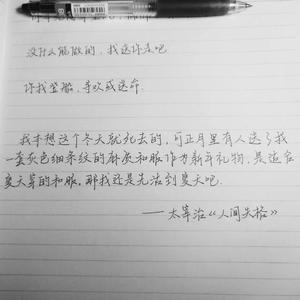 没什么能做的，我送你走吧
你找坐船，等吹或送命.
我本想这个冬天就死去的，可正月里有人送了我
一套灰色细条纹的麻质和服作为新年礼物，是适合
夏天穿的和服，那我还是先活到夏天吧.
——太宰治《人间失格》